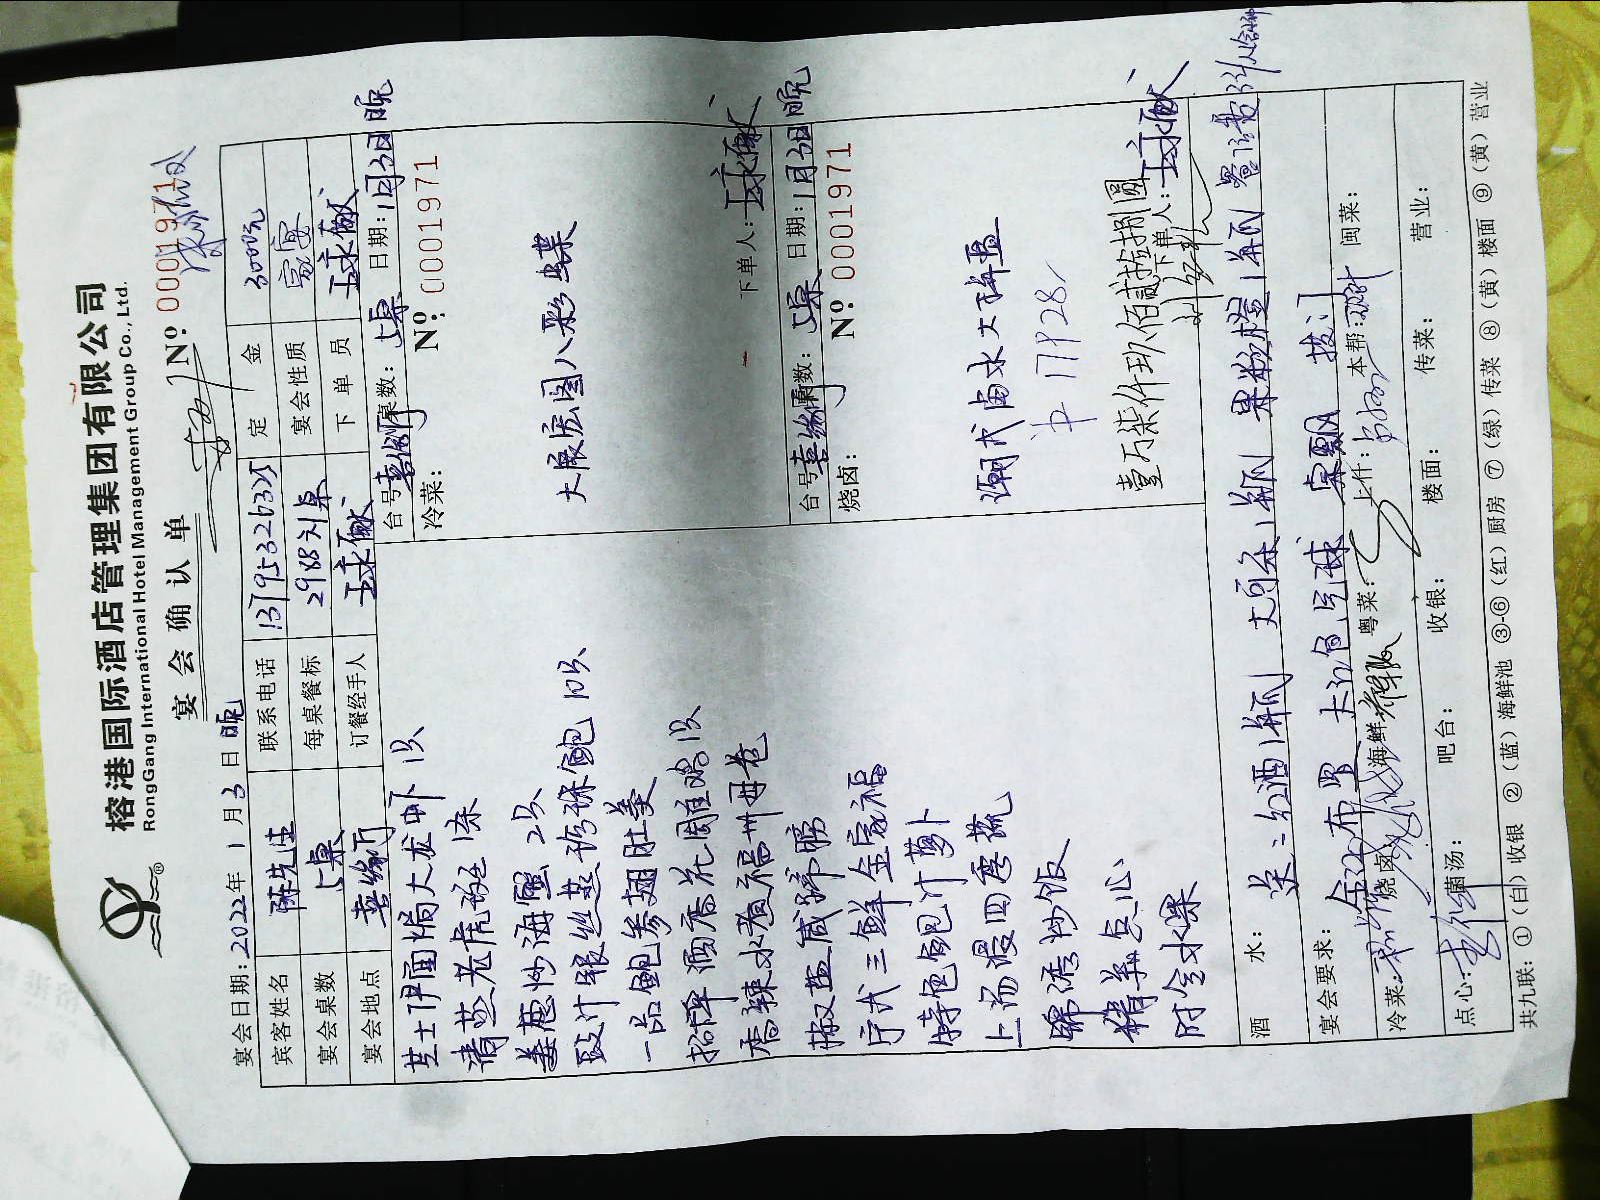 榕港国际酒店管理集团有限公司
RongGang International Hotel Management Group Co., Ltd.
宴会确认单
Nº: 0001971
宴会日期: 2022年1月3日晚
宾客姓名 陈先生 联系电话 13795326325 定金 3000元
宴会桌数 5桌 每桌餐标 2988元/桌 宴会性质 家宴
宴会地点 喜缘厅 订餐经手人 下单员
芝士伊面焗大龙虾 1只
清蒸老虎斑 1条
姜葱炒海蟹 2只
豉汁银丝蒸珍珠鲍 10只
一品鲍参翅肚羹
招牌酒香花雕鸡 1只
香辣水煮福州毋卷
椒盐咸蹄膀
厅式三鲜全家福
特色鲍汁萝卜
上汤漫四季蔬
锦添炒饭
精美点心
时令水果
台号: 喜缘厅 桌数: 5桌 日期: 1月3日晚
冷菜: Nº: 0001971
大展宏图八彩蝶
下单人:
台号: 喜缘厅 桌数: 5桌 日期: 1月3日晚
烧卤: Nº: 0001971
潮式卤水大拼盘
17928
壹万柒仟玖佰贰拾捌圆
下单人:
酒水: 红酒1瓶 大可乐1瓶 果粉橙1瓶
宴会要求: 金色布置 大门色气球
冷菜: 烧卤: 海鲜: 粤菜: 上什: 本帮: 闽菜:
点心: 菌汤: 吧台: 收银: 楼面: 传菜: 营业:
共九联: ①(白)收银 ②(蓝)海鲜池 ③-⑥(红)厨房 ⑦(绿)传菜 ⑧(黄)楼面 ⑨(黄)营业